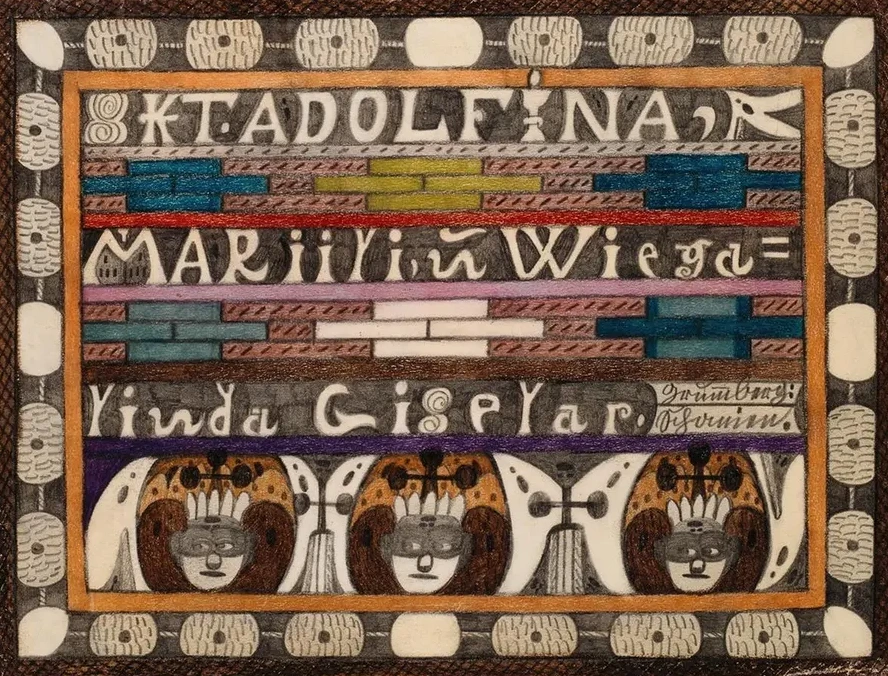 SKT. ADOLFINA,
MARiili, ū Wiega=
linda Giselar.
Grum̄berg:
Schanien.